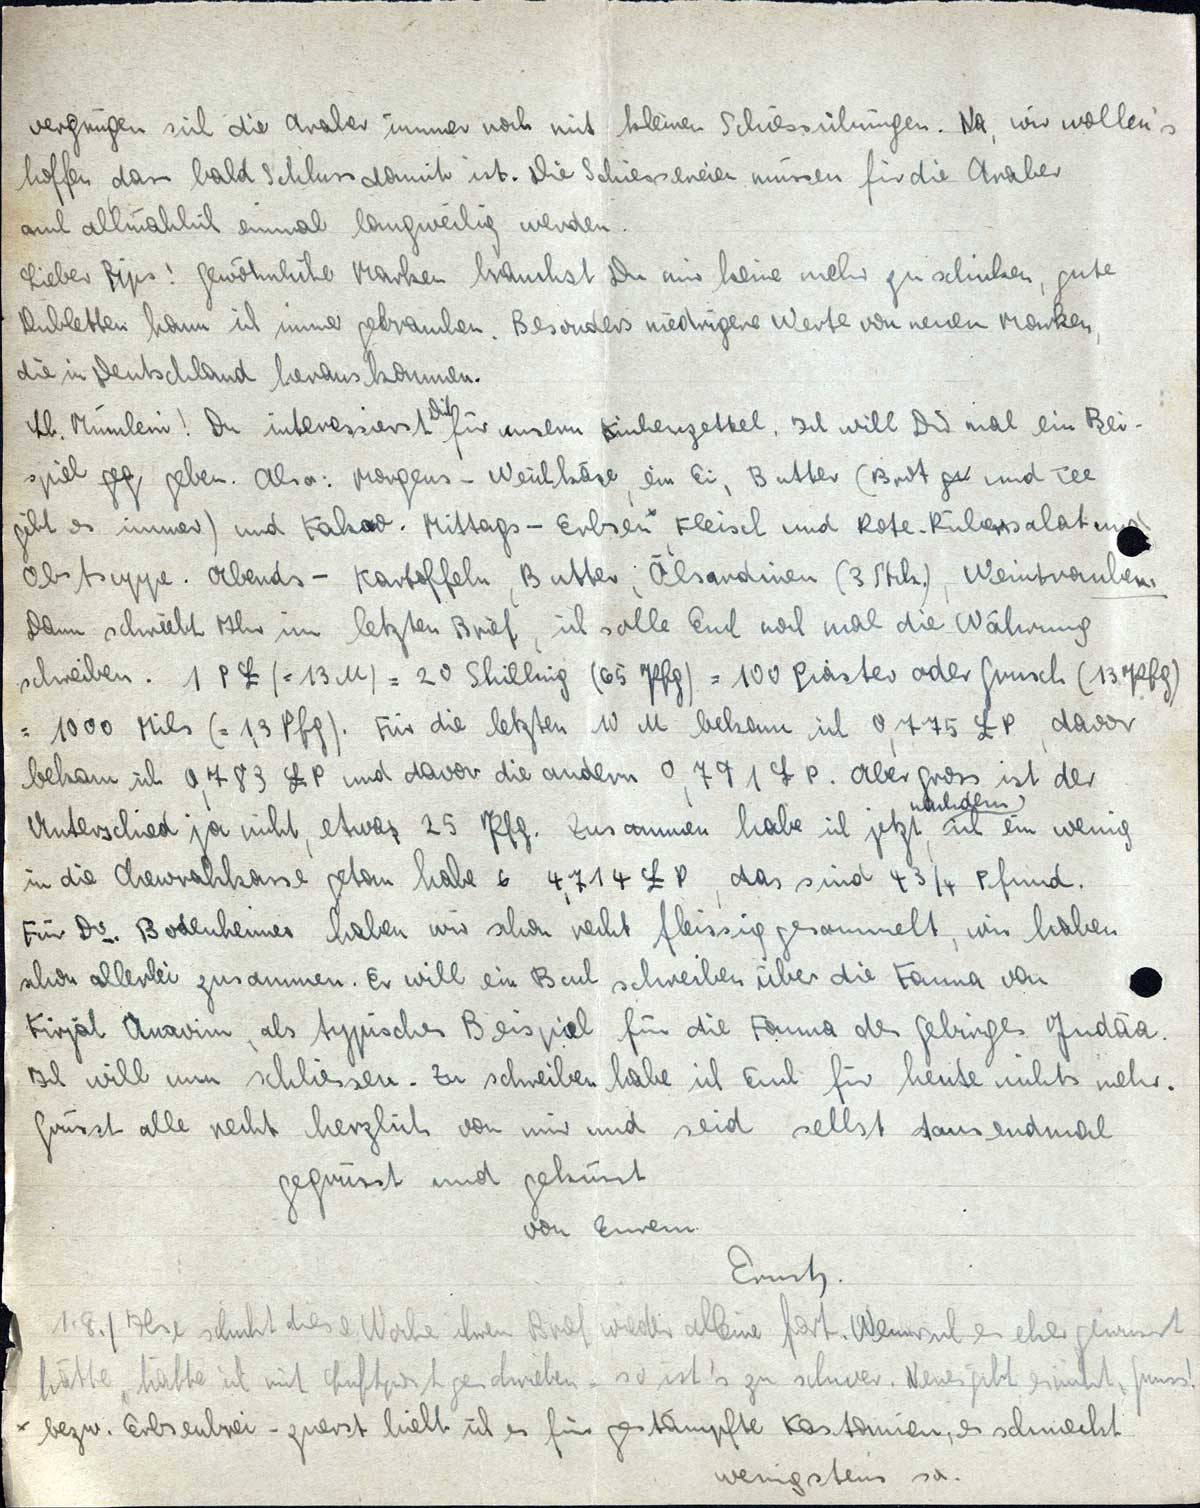 vergnügen sich die Araber immer noch mit kleinen Schiessübungen. Na, wir wollen's
hoffen, dass bald Schluss damit ist. Die Schiessereien müssen für die Araber
auch allmählich einmal langweilig werden.
Lieber Pips! Gewöhnliche Marken brauchst Du mir keine mehr zu schicken, gute
Dubletten kann ich immer gebrauchen. Besonders niedrigere Werte von neuen Marken,
die in Deutschland herauskommen.
Lb. Mümlein! Du interessierst Dich für unsern Küchenzettel. Ich will Dir mal ein Bei-
spiel geben. Also: Morgens - Weichkäse, ein Ei, Butter (Brot und Tee
gibt es immer) und Kakao. Mittags - Erbsen* Fleisch und Rote-Rübensalat und
Obstsuppe. Abends - Kartoffeln, Butter, Ölsardinen (3 Stck.), Weintrauben.
Dann schriebt Ihr im letzten Brief, ich solle Euch noch mal die Währung
schreiben. 1 P £ (= 13 M) = 20 Shilling (65 Pfg) = 100 Piaster oder Grusch (13 Pfg)
= 1000 Mils (= 1,3 Pfg). Für die letzten 10 M bekam ich 0,775 £P, davor
bekam ich 0,783 £P und davor die andern 0,791 £P. Aber gross ist der
Unterschied ja nicht, etwas 25 Pfg. Zusammen habe ich jetzt, nachdem ich ein wenig
in die Chewrahkasse getan habe 4,714 £P, das sind 4 3/4 Pfund.
Für Dr. Bodenheimer haben wir schon recht fleissig gesammelt, wir haben
schon allerlei zusammen. Er will ein Buch schreiben über die Fauna von
Kirjat Anavim, als typisches Beispiel für die Fauna des Gebirges Judäa.
Ich will nun schliessen. Zu schreiben habe ich Euch für heute nichts mehr.
Grüsst alle recht herzlich von mir und seid selbst tausendmal
gegrüsst und geküsst
von Eurem
Ernst.
1.8./ Ilse schickt diese Woche ihren Brief wieder alleine fort. Wenn ich es eher gewusst
hätte, hätte ich mit Luftpost geschrieben - so ist's zu schwer. Neues gibt es nicht, Gruss!
* bezw. Erbsenbrei - zuerst hielt ich es für gestampfte Kastanien, es schmeckt
wenigstens so.